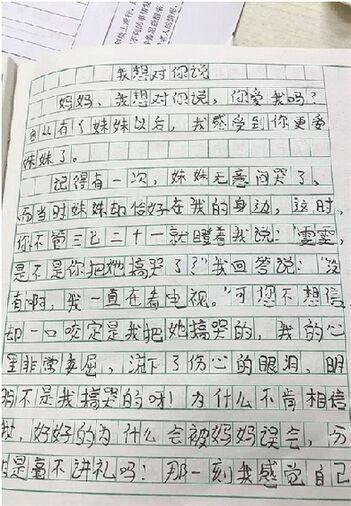 我想对你说
妈妈，我想对你说，你爱我吗？
自从有了妹妹以后，我感受到你更爱
妹妹了。
记得有一次，妹妹无意间哭了，
而当时妹妹却恰好在我的身边，这时，
你不管三七二十一就瞪着我说：“雯雯，
是不是你把她搞哭了？”我回答说：“没
有啊，我一直在看电视。”可您不想信
却一口咬定是我把她搞哭的，我的心
里非常委屈，流下了伤心的眼泪，明
明不是我搞哭的呀！为什么不肯相信
我，好好的为什么会被妈妈误会，
是毫不讲礼吗！那一刻我感觉自己